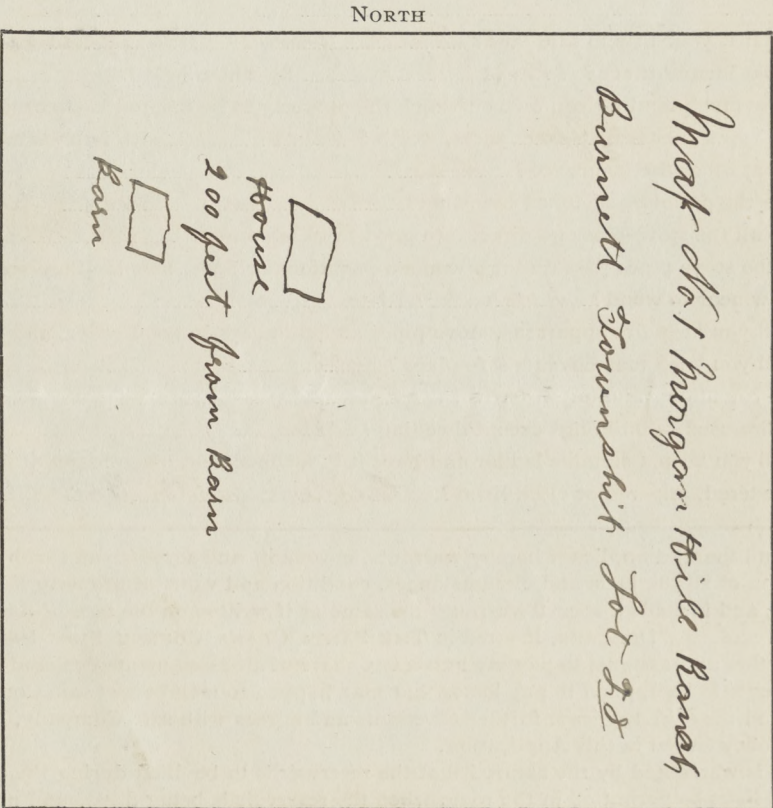 NORTH
Map No. 1 Morgan Hill Ranch
Burnett Township Lot
House
200 feet from Barn
Barn